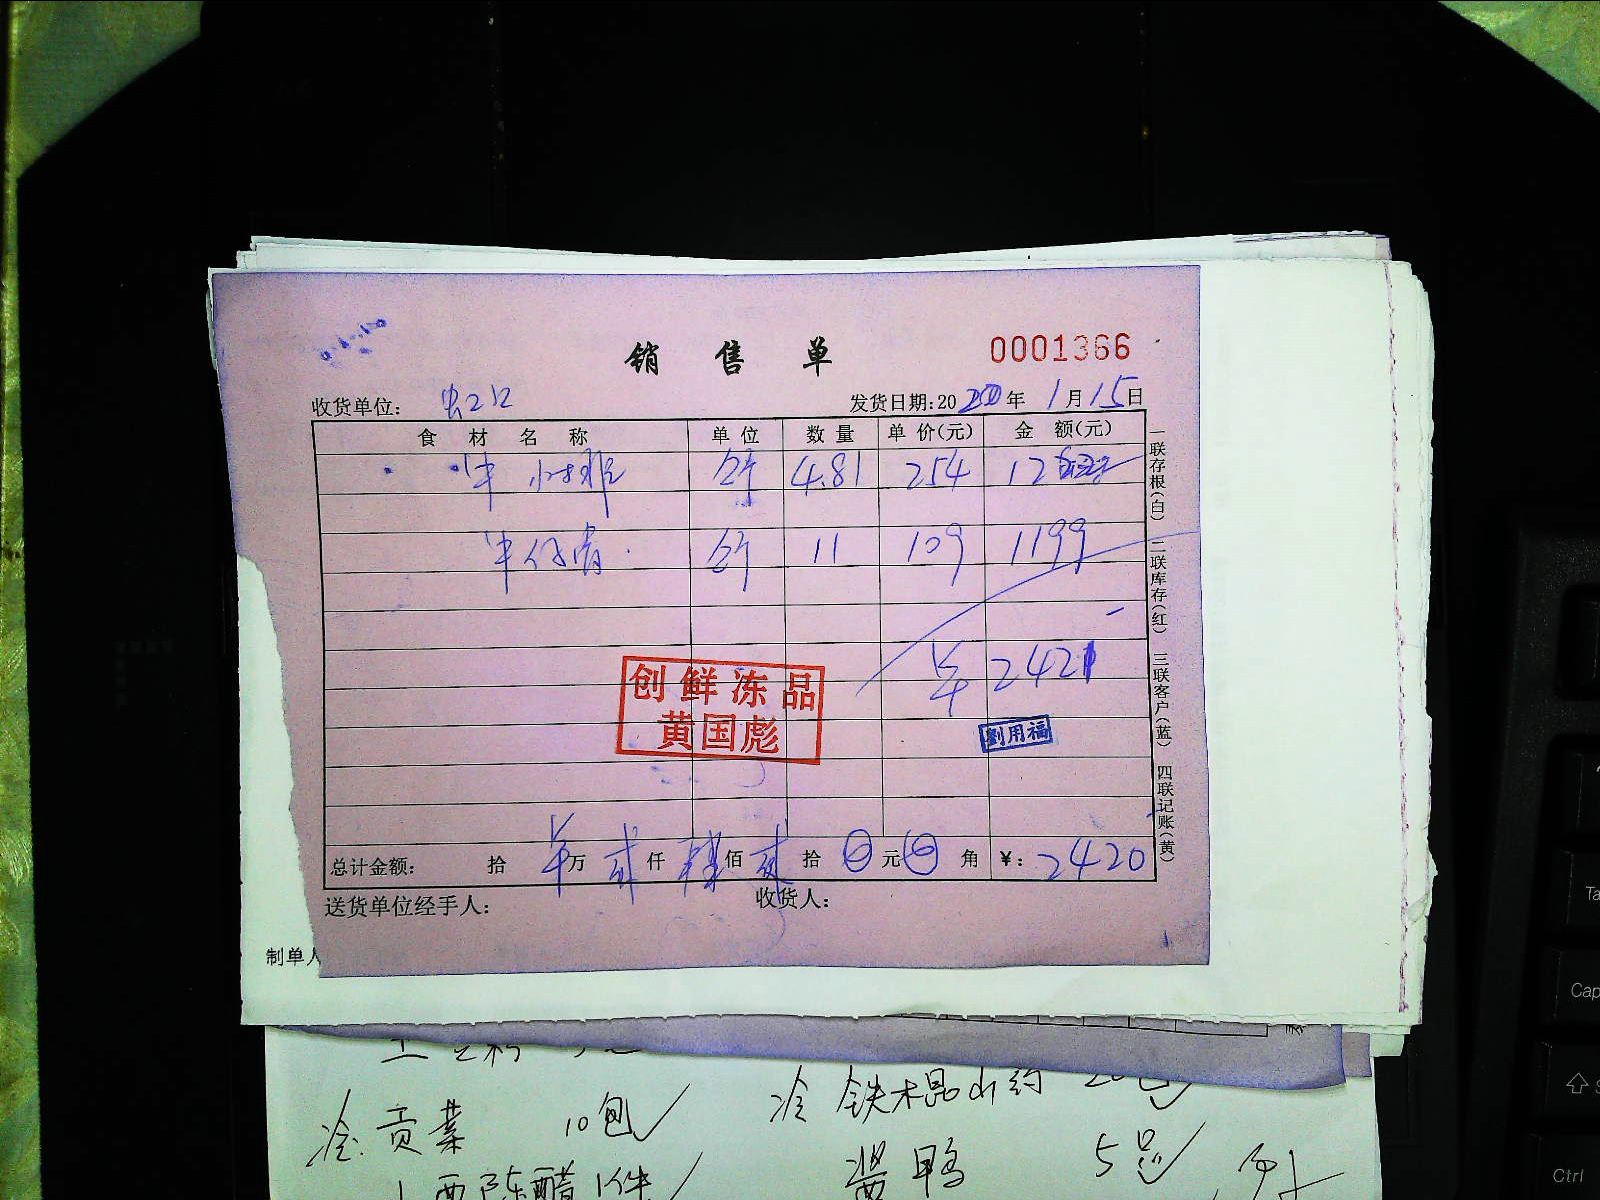 销售单 0001366
收货单位: 发货日期:2020年1月15日
食材名称 单位 数量 单价(元) 金额(元)
牛小排 斤 4.81 254 12
牛仔骨 斤 11 109 1199
2421
创鲜冻品
黄国彪
劉用福
总计金额: 拾 万 贰仟 肆佰 贰拾 0元 0角 ¥: 2420
送货单位经手人: 收货人:
一联存根(白) 二联库存(红) 三联客户(蓝) 四联记账(黄)
制单人
冷 铁木昆山药 20包
冷 贡菜 10包
酱鸭 5只
山西陈醋 1件
Ta
Cap
Ctrl